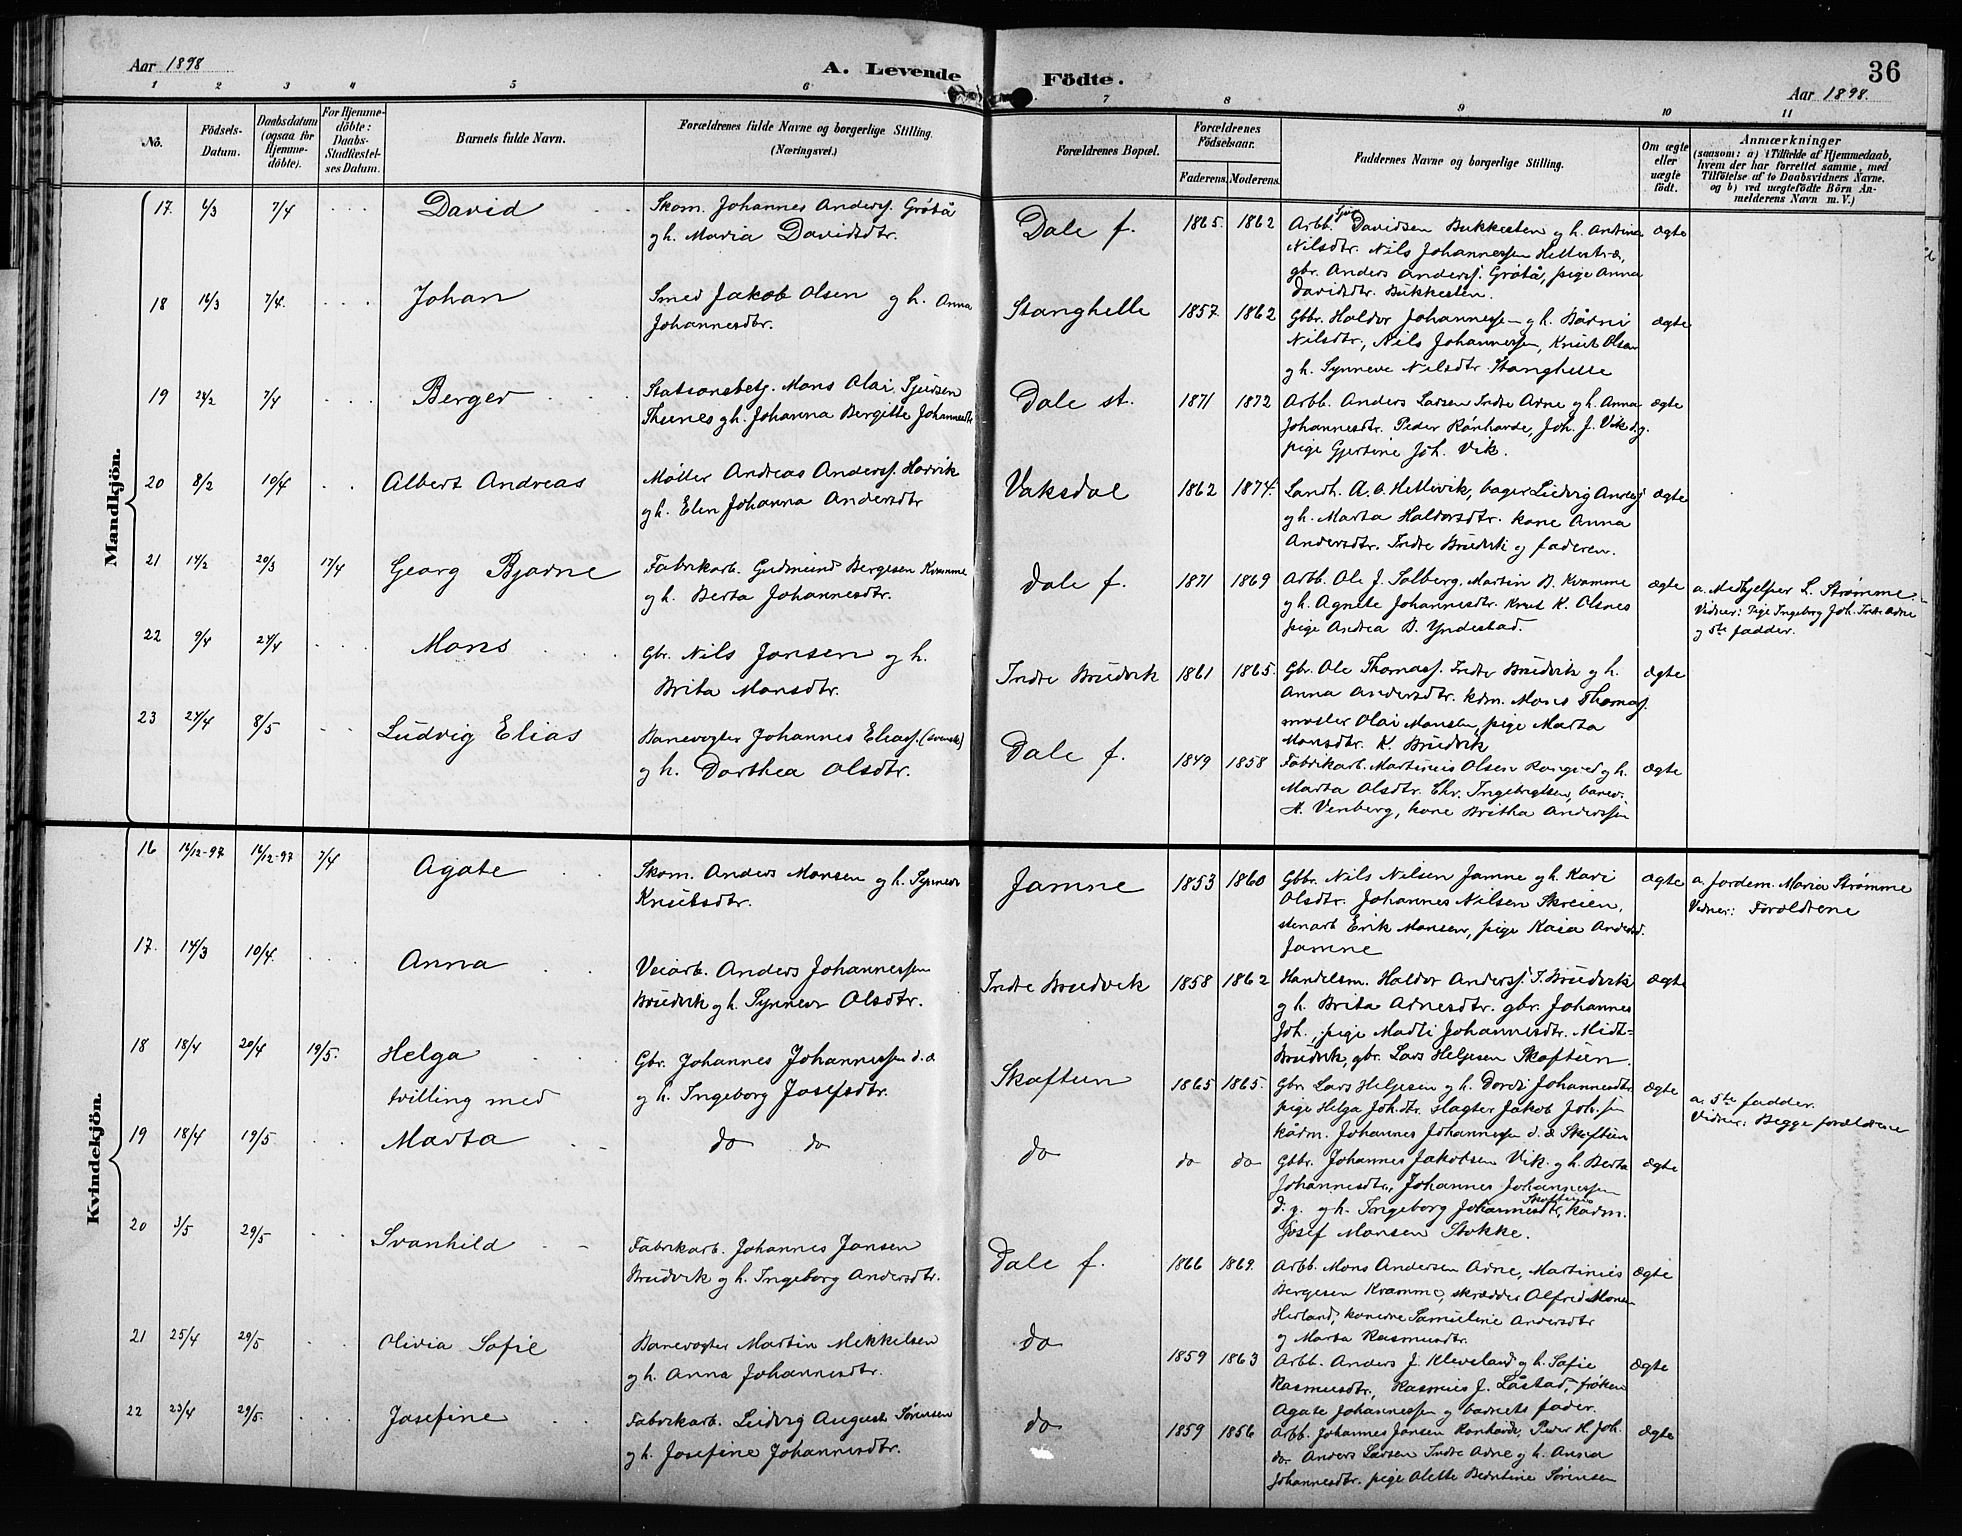 Aar 1898
A. Levende Födte.
36
Aar 1898.
1 2 3 4 5 6 7 8 9 10 11
No.
Födsels-Datum.
Daabsdatum (ogsaa for Hjemme-döbte).
For Hjemme-döbte: Daabs-Stadfestel-ses Datum.
Barnets fulde Navn.
Forældrenes fulde Navne og borgerlige Stilling. (Næringsvei.)
Forældrenes Bopæl.
Forældrenes Födselsaar.
Faderens. Moderens.
Faddernes Navne og borgerlige Stilling.
Om ægte eller uægte födt.
Anmærkninger
(saasom: a) i Tilfælde af Hjemmedaab,
hvem der har forrettet samme, med
Tilföielse af to Daabsvidners Navne.
og b) ved uegtefödte Börn An-
melderens Navn m. V.)
Mandkjön.
17. 6/3 7/4 David
Skom. Johannes Anderss. Grötå
g h. Maria Davidsdtr.
Dale f. 1865. 1862
Arbb. Davidsen Bukkesten g h. Andrina
Nilsdtr. Nils Johannessen Hettestræ,
gbr. Anders Anderss. Grötå, pige Anna
Davidsdtr. Bukkesten.
ægte
18 16/3 7/4. Johan
Smed Jakob Olsen g h. Anna
Johannesdtr.
Stanghelle 1857 1862
Gbbr. Haldor Johannessen g h. Bårni
Nilsdtr., Nils Johannessen, Knut Olsen
g h. Synneve Nilsdtr. Stanghelle
ægte
19 24/2 7/4 Berger
Stationsbetj. Mons Olai Sjursen
Thunes g h. Johanna Bergitte Johannesdtr
Dale st. 1871 1872
Arbb. Anders Larsen Indre Arne g h. Anna
Johannesdtr. Peder Rönhovde, Joh. J. Vik d.y.
pige Gjertine Joh. Vik.
ægte
20 8/2 10/4 Albert Andreas
Möller Andreas Anderss. Harvik
g h. Elen Johanna Andersdtr
Vaksdal 1862 1874.
Landh. A. O. Hettevik, bager Ludvig Anderss
g h. Marta Haldorsdtr. kone Anna
Andersdtr. Indre Bruvik og faderen.
ægte
21 14/2 20/3 17/4 Georg Bjarne
Fabrikarb. Gudmund Bergesen Kvamme
g h. Berta Johannesdtr.
Dale f. 1871 1869
Arbb. Ole J. Solberg, Martin B. Kvamme
g h. Agnete Johannesdtr. Knut K. Olsnes
pige Andrea B. Yndestad.
ægte
a. Medhjelper L. Strömme.
Vidner: Pige Ingeborg Joh. Indre Arne
og 5te fadder.
22 9/4 24/4 Mons
Gbr. Nils Jansen g h.
Brita Monsdtr.
Indre Bruvik 1861 1865.
Gbr. Ole Thomass. Indre Bruvik g h.
Anna Andersdtr. kdm. Mons Thomass.
møller Olai Monsen, pige Marta
Monsdtr. K. Bruvik
ægte
23 24/4 8/5 Ludvig Elias
Banevogter Johannes Eliass. (svensk)
g h. Dorthea Olsdtr.
Dale f. 1849 1858
Fabrikarb. Martinus Olsen Rongved g h.
Marta Olsdtr. Chr. Ingebrigtsen, banev.
A. Venberg, kone Britha Anderssen
ægte
Kvindekjön.
16 16/12-97 16/12-97 7/4 Agate
Skom. Anders Monsen g h. Synneve
Knutsdtr.
Jamne 1853 1860
Gbbr. Nils Nilsen Jamne g h. Kari
Olsdtr. Johannes Nilsen Skreien,
stenarb Erik Monsen, pige Kaia Andersd.
Jamne
ægte
a. Jordem. Maria Strömme
Vidner: Forældrene
17. 14/3 10/4. Anna
Veiarb. Anders Johannessen
Bruvik g h. Synneve Olsdtr.
Indre Bruvik 1858 1862
Handelsm. Haldor Anderss. I. Bruvik
g h. Brita Arnesdtr. gbr. Johannes
Joh., pige Madli Johannesdtr. Midt-
Bruvik, gbr. Lars Helgesen Skoftun.
ægte
18 18/4 20/4 19/5. Helga
tvilling med
Gbr. Johannes Johannessen d. æ
g h. Ingeborg Josefsdtr.
Skoftun 1865 1865.
Gbr. Lars Helgesen g h. Dordi Johannesdtr
pige Helga Joh.dtr. Slagter Jakob Joh.sen
kårm. Johannes Johannessen d. æ Skoftun
ægte
a. 5te fadder.
Vidner: Begge forældrene
19 18/4 19/5. Marta
do do
do do do
Gbbr. Johannes Jakobsen Vik. g h. Berta
Johannesdtr., Johannes Johannessen
d. y. g h. Ingeborg Johannesdtr. Skoftun, kårm.
Josef Monsen Stokke.
ægte
20 3/5 29/5 Svanhild
Fabrikarb. Johannes Jansen
Bruvik g h. Ingeborg Andersdtr.
Dale f. 1866 1869.
Arbb. Mons Andersen Arne, Martinus
Bergesen Kvamme, skrædder Alfred Monsen
Herland, konerne Samueline Andersdtr
og Marta Rasmusdtr.
ægte
21 25/4 29/5 Olivia Sofie
Banevogter Martin Mikkelsen
g h. Anna Johannesdtr.
do 1859 1863
Arbb. Anders J. Kleveland g h. Sofie
Rasmusdtr., Rasmus J. Låstad, frøken
Agate Johannessen og barnets fader.
ægte
22 23/4 29/5. Josefine
Fabrikarb. Ludvig August Sörensen
g h. Josefine Johannesdtr.
do 1859 1856
Arbb. Johannes Jansen Ronhovde, Peder H. Joh.
do Anders Larsen Indre Arne g h. Anna
Johannesdtr. pige Alette Berntine Sörensen
ægte